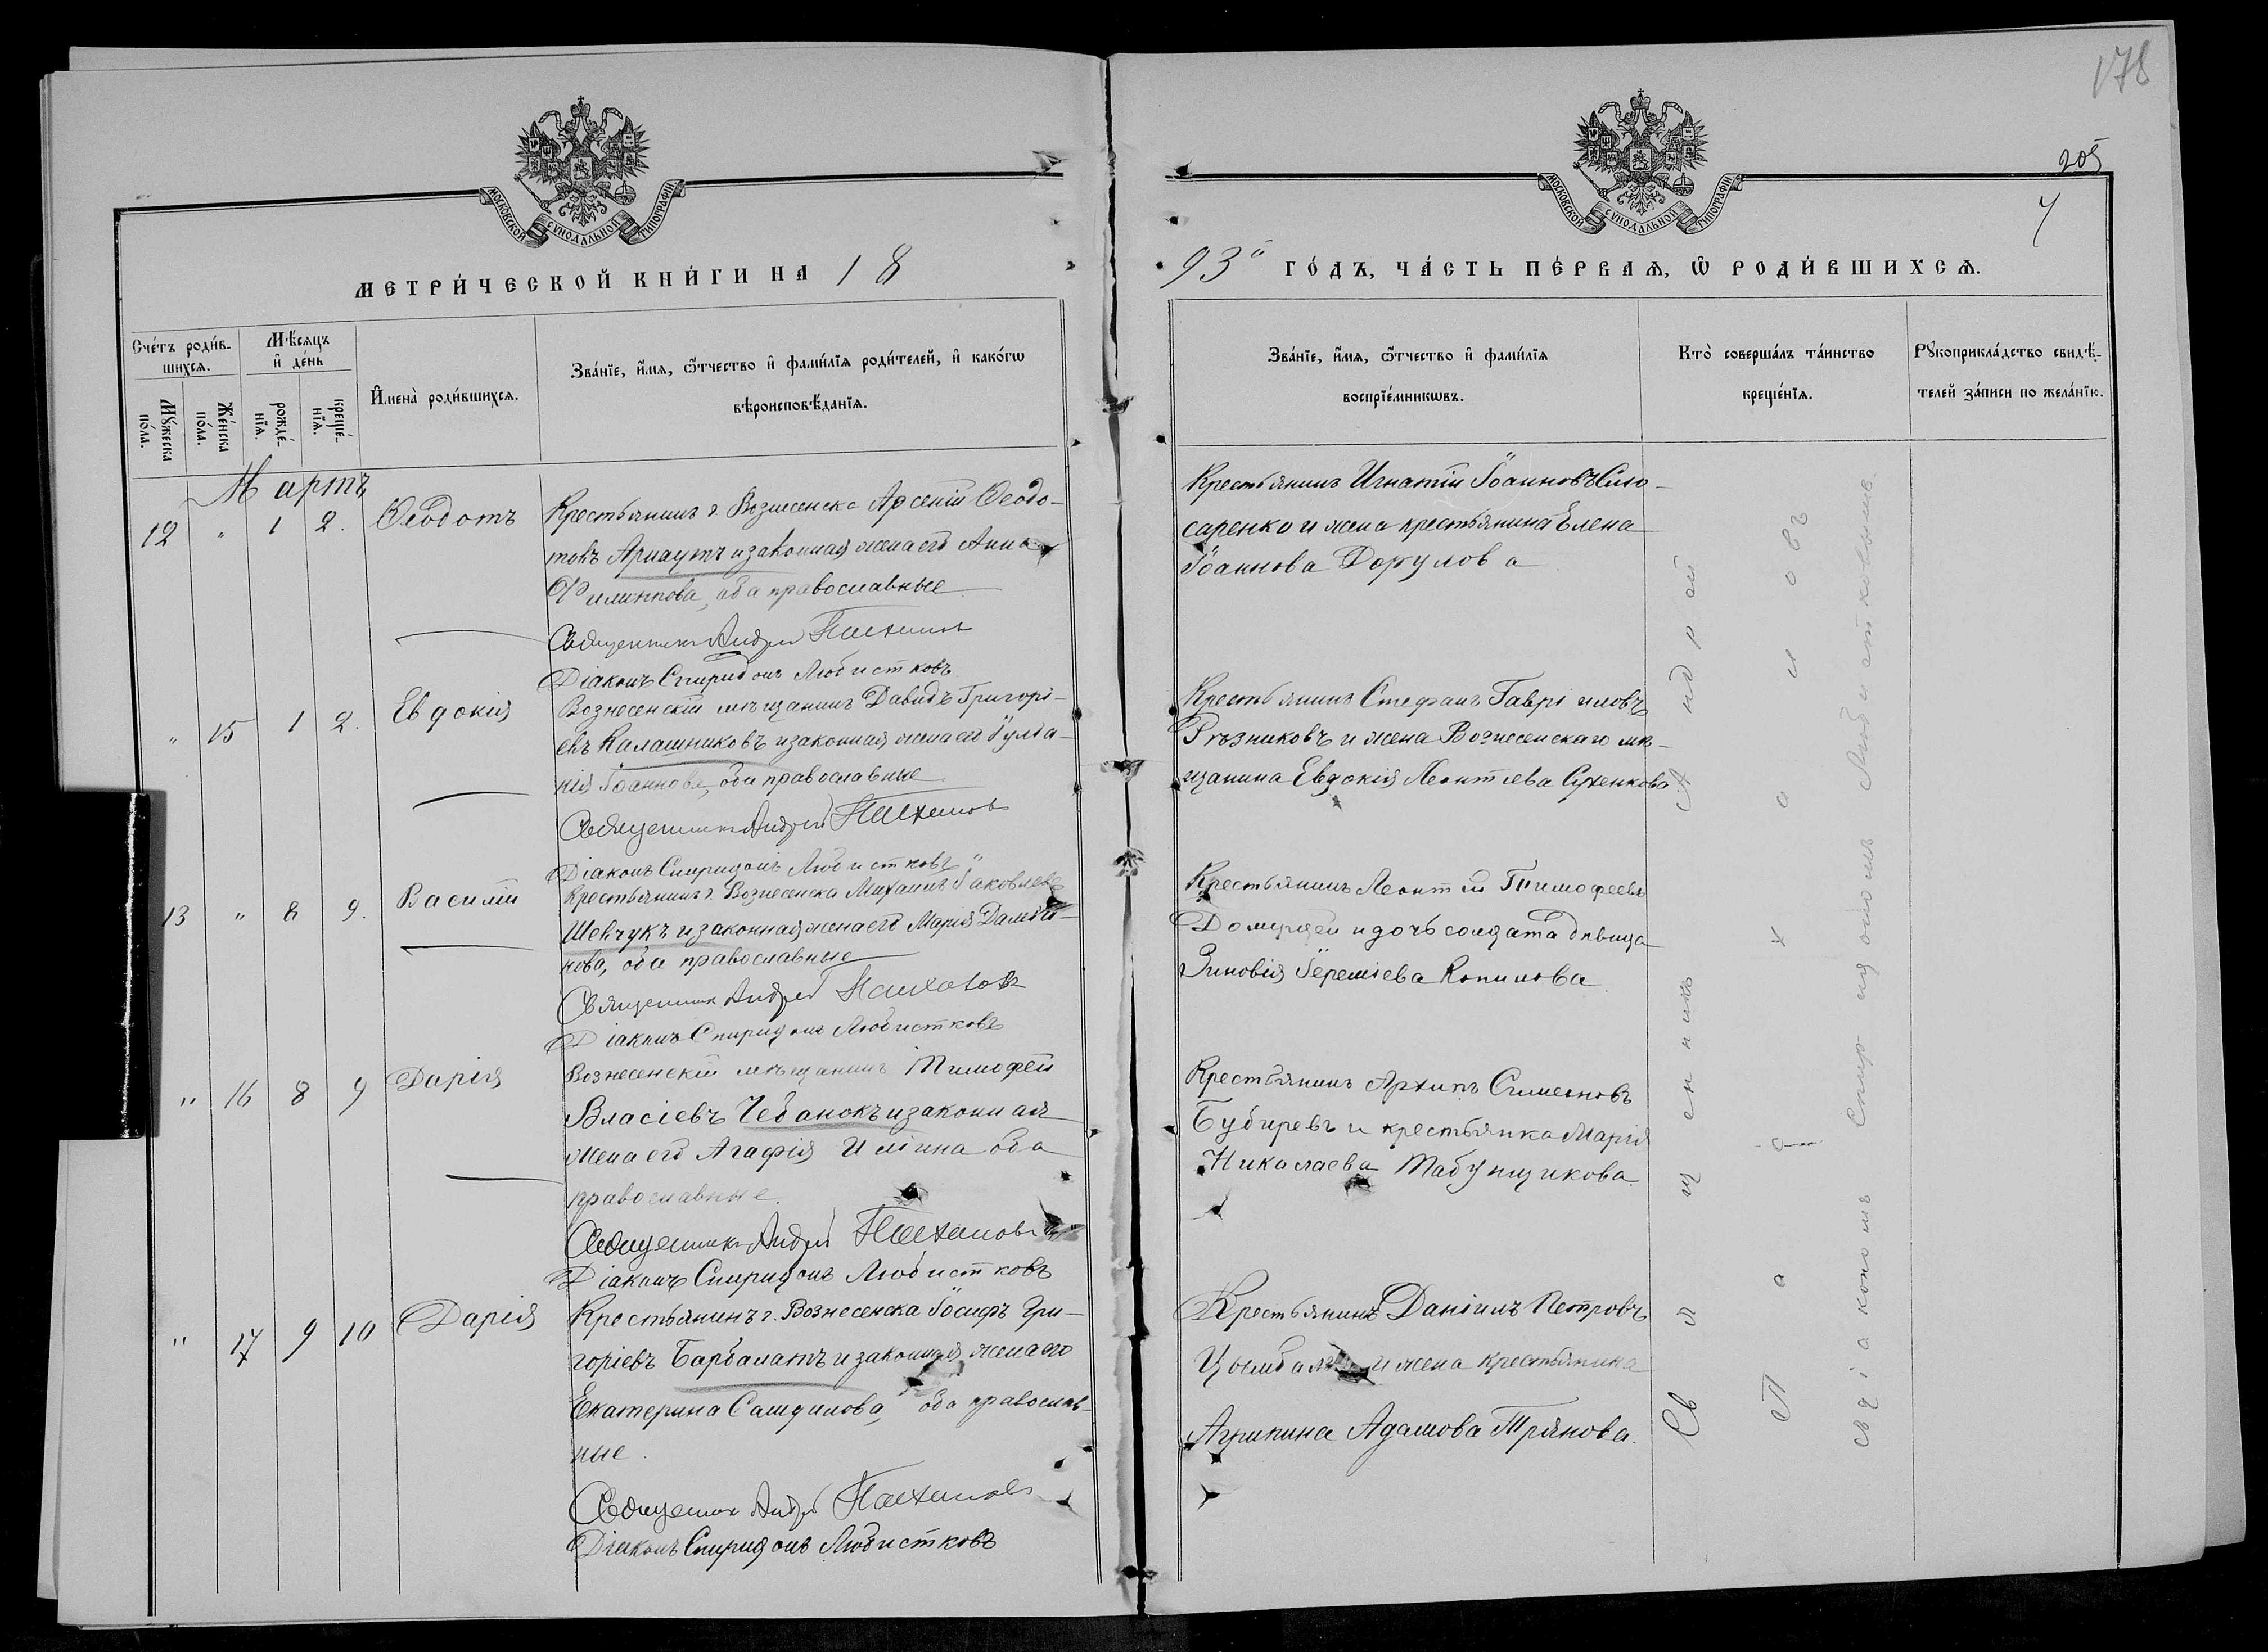 178
205
7
МОСКОВСКОЙ СѴНОДАЛЬНОЙ ТИПОГРАФІИ
МОСКОВСКОЙ СѴНОДАЛЬНОЙ ТИПОГРАФІИ
МЕТРИ́ЧЕСКОЙ КНИ́ГИ НА 18
93й ГО́ДЪ, ЧА́СТЬ ПЕ́РВАѦ, Ѡ҆ РОДИ́ВШИХСѦ.
Сче́тъ роди́в-
шихсѧ.
Мꙋ́жеска по́ла.
Же́нска по́ла.
Мѣ́сѧцъ
и҆ де́нь
рожде́-
нїѧ.
креще́-
нїѧ.
И҆мена̀ роди́вшихсѧ.
Зва́нїе, и҆́мѧ, ѻ҆́тчество и҆ фами́лїѧ роди́телей, и҆ како́гѡ
вѣроисповѣ́данїѧ.
Зва́нїе, и҆́мѧ, ѻ҆́тчество и҆ фами́лїѧ
воспрїе́мникѡвъ.
Кто̀ соверша́лъ та́инство
креще́нїѧ.
Рꙋкоприкла́дство свидѣ́-
телей за́писи по жела́нїю.
Мартъ
12 " 1 2. Ѳеодотъ
Крестьянинъ г. Вознесенска Арсеній Ѳеодо-
товъ Арнаутъ и законная жена его Анна
Филиппова, оба православные
Священникъ Андрей Пахаловъ
Діаконъ Спиридонъ Любистковъ
Крестьянинъ Игнатій Іоанновъ Слю-
саренко и жена крестьянина Елена
Іоаннова
" 15 1 2. Евдокія
Вознесенскій мѣщанинъ Давидъ Григорі-
евъ Калашниковъ и законная жена его Іуліа-
нія Іоаннова, оба православные
Священникъ Андрей Пахаловъ
Діаконъ Спиридонъ Любистковъ
Крестьянинъ Стефанъ Гавріиловъ
Рѣзниковъ и жена Вознесенскаго мѣ-
щанина Евдокія Леонтіева
13 " 8 9. Василій
Крестьянинъ г. Вознесенска Михаилъ Іаковлевъ
Шевчукъ и законная жена его Марія Даміа-
нова, оба православные
Священникъ Андрей Пахаловъ
Діаконъ Спиридонъ Любистковъ
Крестьянинъ Леонтій Тимофеевъ
и дочь солдата дѣвица
Зиновія Іереміева Копилова
" 16 8 9 Дарія
Вознесенскій мѣщанинъ Тимофей
Власіевъ Чебанокъ и законная
жена его Агафія Иліина оба
православные.
Священникъ Андрей Пахаловъ
Діаконъ Спиридонъ Любистковъ
Крестьянинъ Архипъ Симеоновъ
Бубыревъ и крестьянка Марія
Николаева Табунщикова
" 17 9 10 Дарія
Крестьянинъ г. Вознесенска Іосифъ Гри-
горіевъ Барбалатъ и законная жена его
Екатерина Самуилова, оба православ-
ные.
Священникъ Андрей Пахаловъ
Діаконъ Спиридонъ Любистковъ
Крестьянинъ Даніилъ Петровъ
и жена крестьянина
Агрипина Адамова
Священникъ Андрей
Пахаловъ
съ діакономъ Спиридономъ Любистковыме